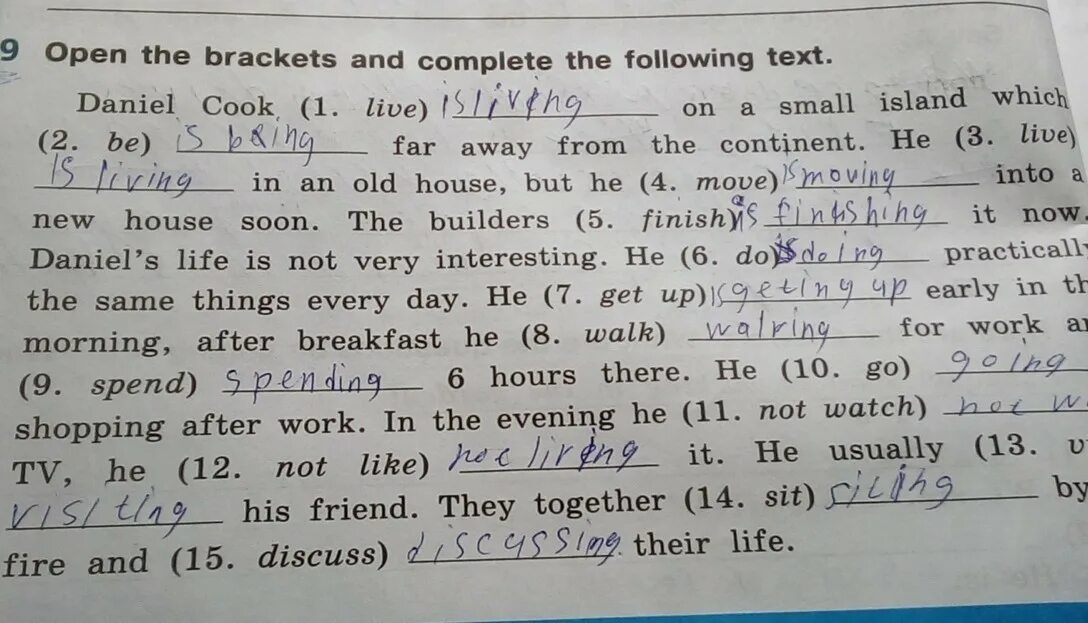 9 Open the brackets and complete the following text.
Daniel Cook (1. live) is living on a small island which
(2. be) is being far away from the continent. He (3. live)
is living in an old house, but he (4. move) is moving into a
new house soon. The builders (5. finish) is finishing it now.
Daniel's life is not very interesting. He (6. do) is doing practically
the same things every day. He (7. get up) is geting up early in th
morning, after breakfast he (8. walk) walking for work a
(9. spend) spending 6 hours there. He (10. go) going
shopping after work. In the evening he (11. not watch) not w
TV, he (12. not like) not liking it. He usually (13. v
visiting his friend. They together (14. sit) siting by
fire and (15. discuss) discussing their life.